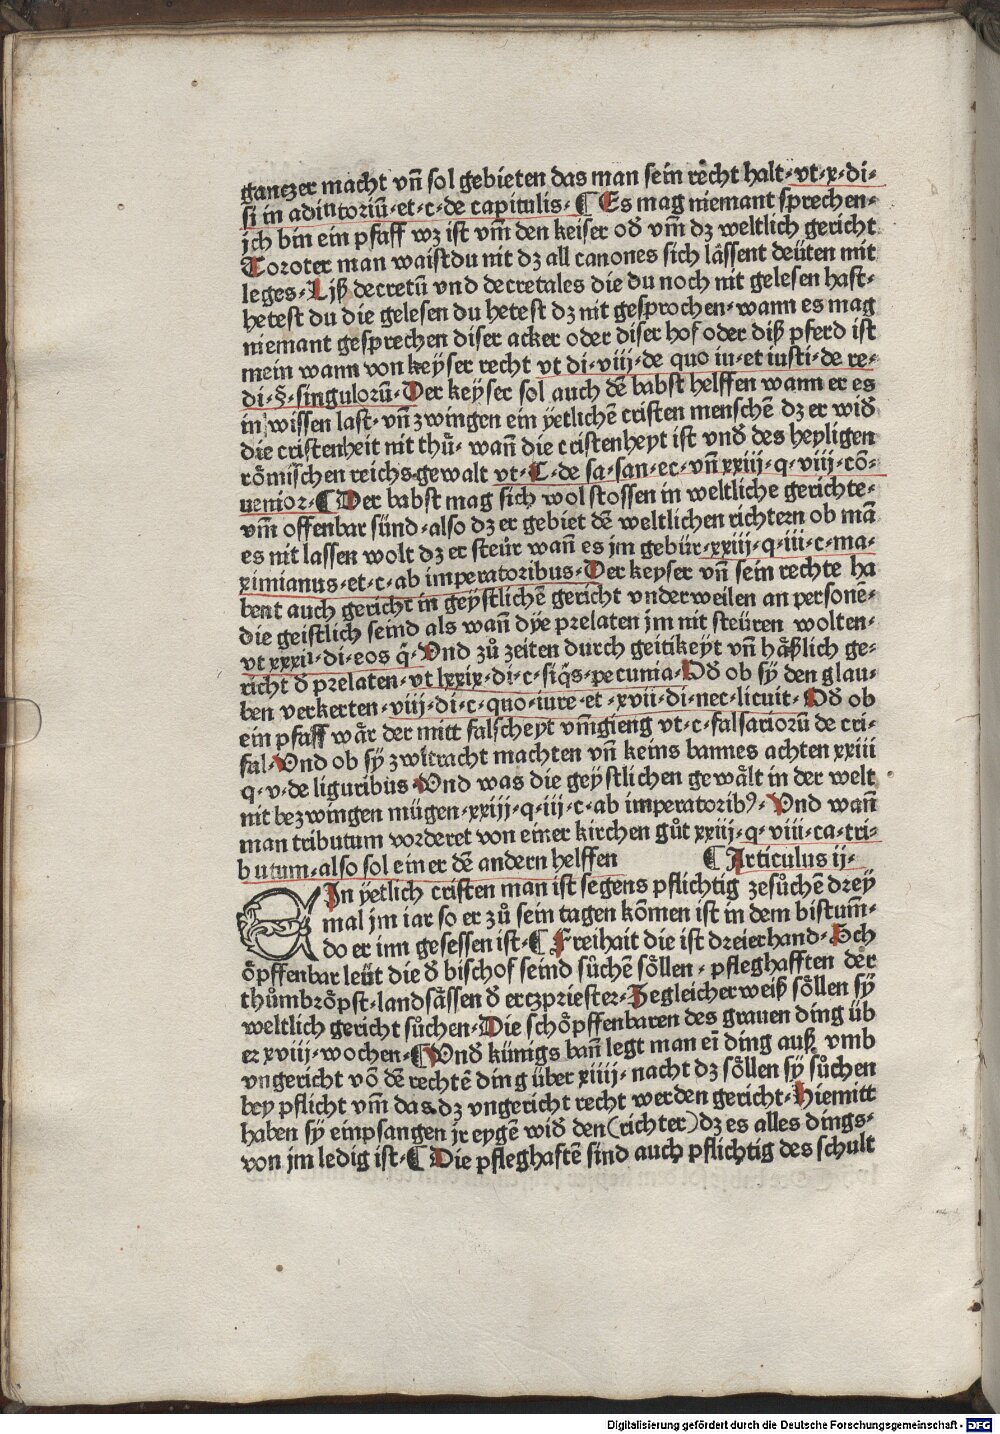 ganczer macht vn̄ sol gebieten das man sein recht halt·vt·x·di⸗
si in adiutoriū·et·c·de capitulis·¶ Es mag niemant sprechen⸗
jch bin ein pfaff wz ist vm̄ den keiser oď vm̄ dz weltlich gericht
Toroter man waistdu nit dz all canones sich lăssent deüten mit
leges·Liß decretū vnd decretales die du noch nit gelesen hast⸗
hetest du die gelesen du hetest dz nit gesprochen·wann es mag
niemant gesprechen diser acker oder diser hof oder diß pferd ist
mein wann von keyser recht vt di·viij·de quo iu·et iusti·de re⸗
di·§·singulorū·Der keyser sol auch dē babst helffen wann er es
in wissen last·vn̄ zwingen ein yetlichē cristen menschē dz er wiď
die cristenheit nit thů·wan̄ die cristenheyt ist vnď des heyligen
rŏmischen reichs·gewalt vt·C·de sa·san·ec·vn̄ xxiij·q·viij·cō⸗
uenior·¶ Der babst mag sich wol stossen in weltliche gerichte⸗
vm̄ offenbar sünd·also dz er gebiet dē weltlichen richtern ob mā
es nit lassen wolt dz er steür wan̄ es jm gebür·xxiij·q·iii·c·ma⸗
ximianus·et·c·ab imperatoribus·Der keyser vn̄ sein rechte ha
bent auch gericht in geystlichē gericht vnderweilen an personē⸗
die geistlich seind als wan̄ dye prelaten jm nit steüren wolten⸗
vt xxxii·di·eos q̄·Vnd zů zeiten durch geitikeyt vn̄ hăßlich ge⸗
richt ď prelaten·vt lxxix·di·c·siq̄s·pecunia·Oď ob sy den glau⸗
ben verkerten·viij·di·c·quo·iure·et·xvii·di·nec·licuit·Oď ob
ein pfaff wăr der mitt falscheyt vm̄gieng vt·c·falsariorū de cri⸗
fal·Vnd ob sy zwitracht machten vn̄ keins bannes achten xxiii
q·v·de liguribus·Vnd was die geystlichen gewălt in der welt
nit bezwingen mügen·xxiij·q·iij·c·ab imperatoribꝰ·Vnd wan̄
man tributum vorderet von einer kirchen gůt xxiij·q·viii·ca·tri⸗
butum·also sol einer dē andern helffen ¶ Articulus ij⸗
EIn yetlich cristen man ist segens pflichtig zesůchē drey
mal jm iar so er zů sein tagen kŏmen ist in dem bistum̄⸗
do er inn gesessen ist·¶ Freihait die ist dreierhand·Sch
ŏpffenbar leüt die ď bischof seind sůchē sŏllen·pfleghafften der
thůmbrŏpst·landsăssen ď erczpriester·Zegleicherweiß sŏllen sy
weltlich gericht sůchen·Die schŏpffenbaren des grauen ding üb
er xviij·wochen·¶ Vnď künigs ban̄ legt man eī ding auß vmb
vngericht vō dē rechtē ding über xiiij·nacht dz sŏllen sy sůchen
bey pflicht vm̄ das·dz vngericht recht werden gericht·Hiemitt
haben sy einpfangen jr eygē wiď den(richter)dz es alles dings⸗
von jm ledig ist·¶ Die pfleghaftē sind auch pflichtig des schult
Digitalisierung gefördert durch die Deutsche Forschungsgemeinschaft - DFG